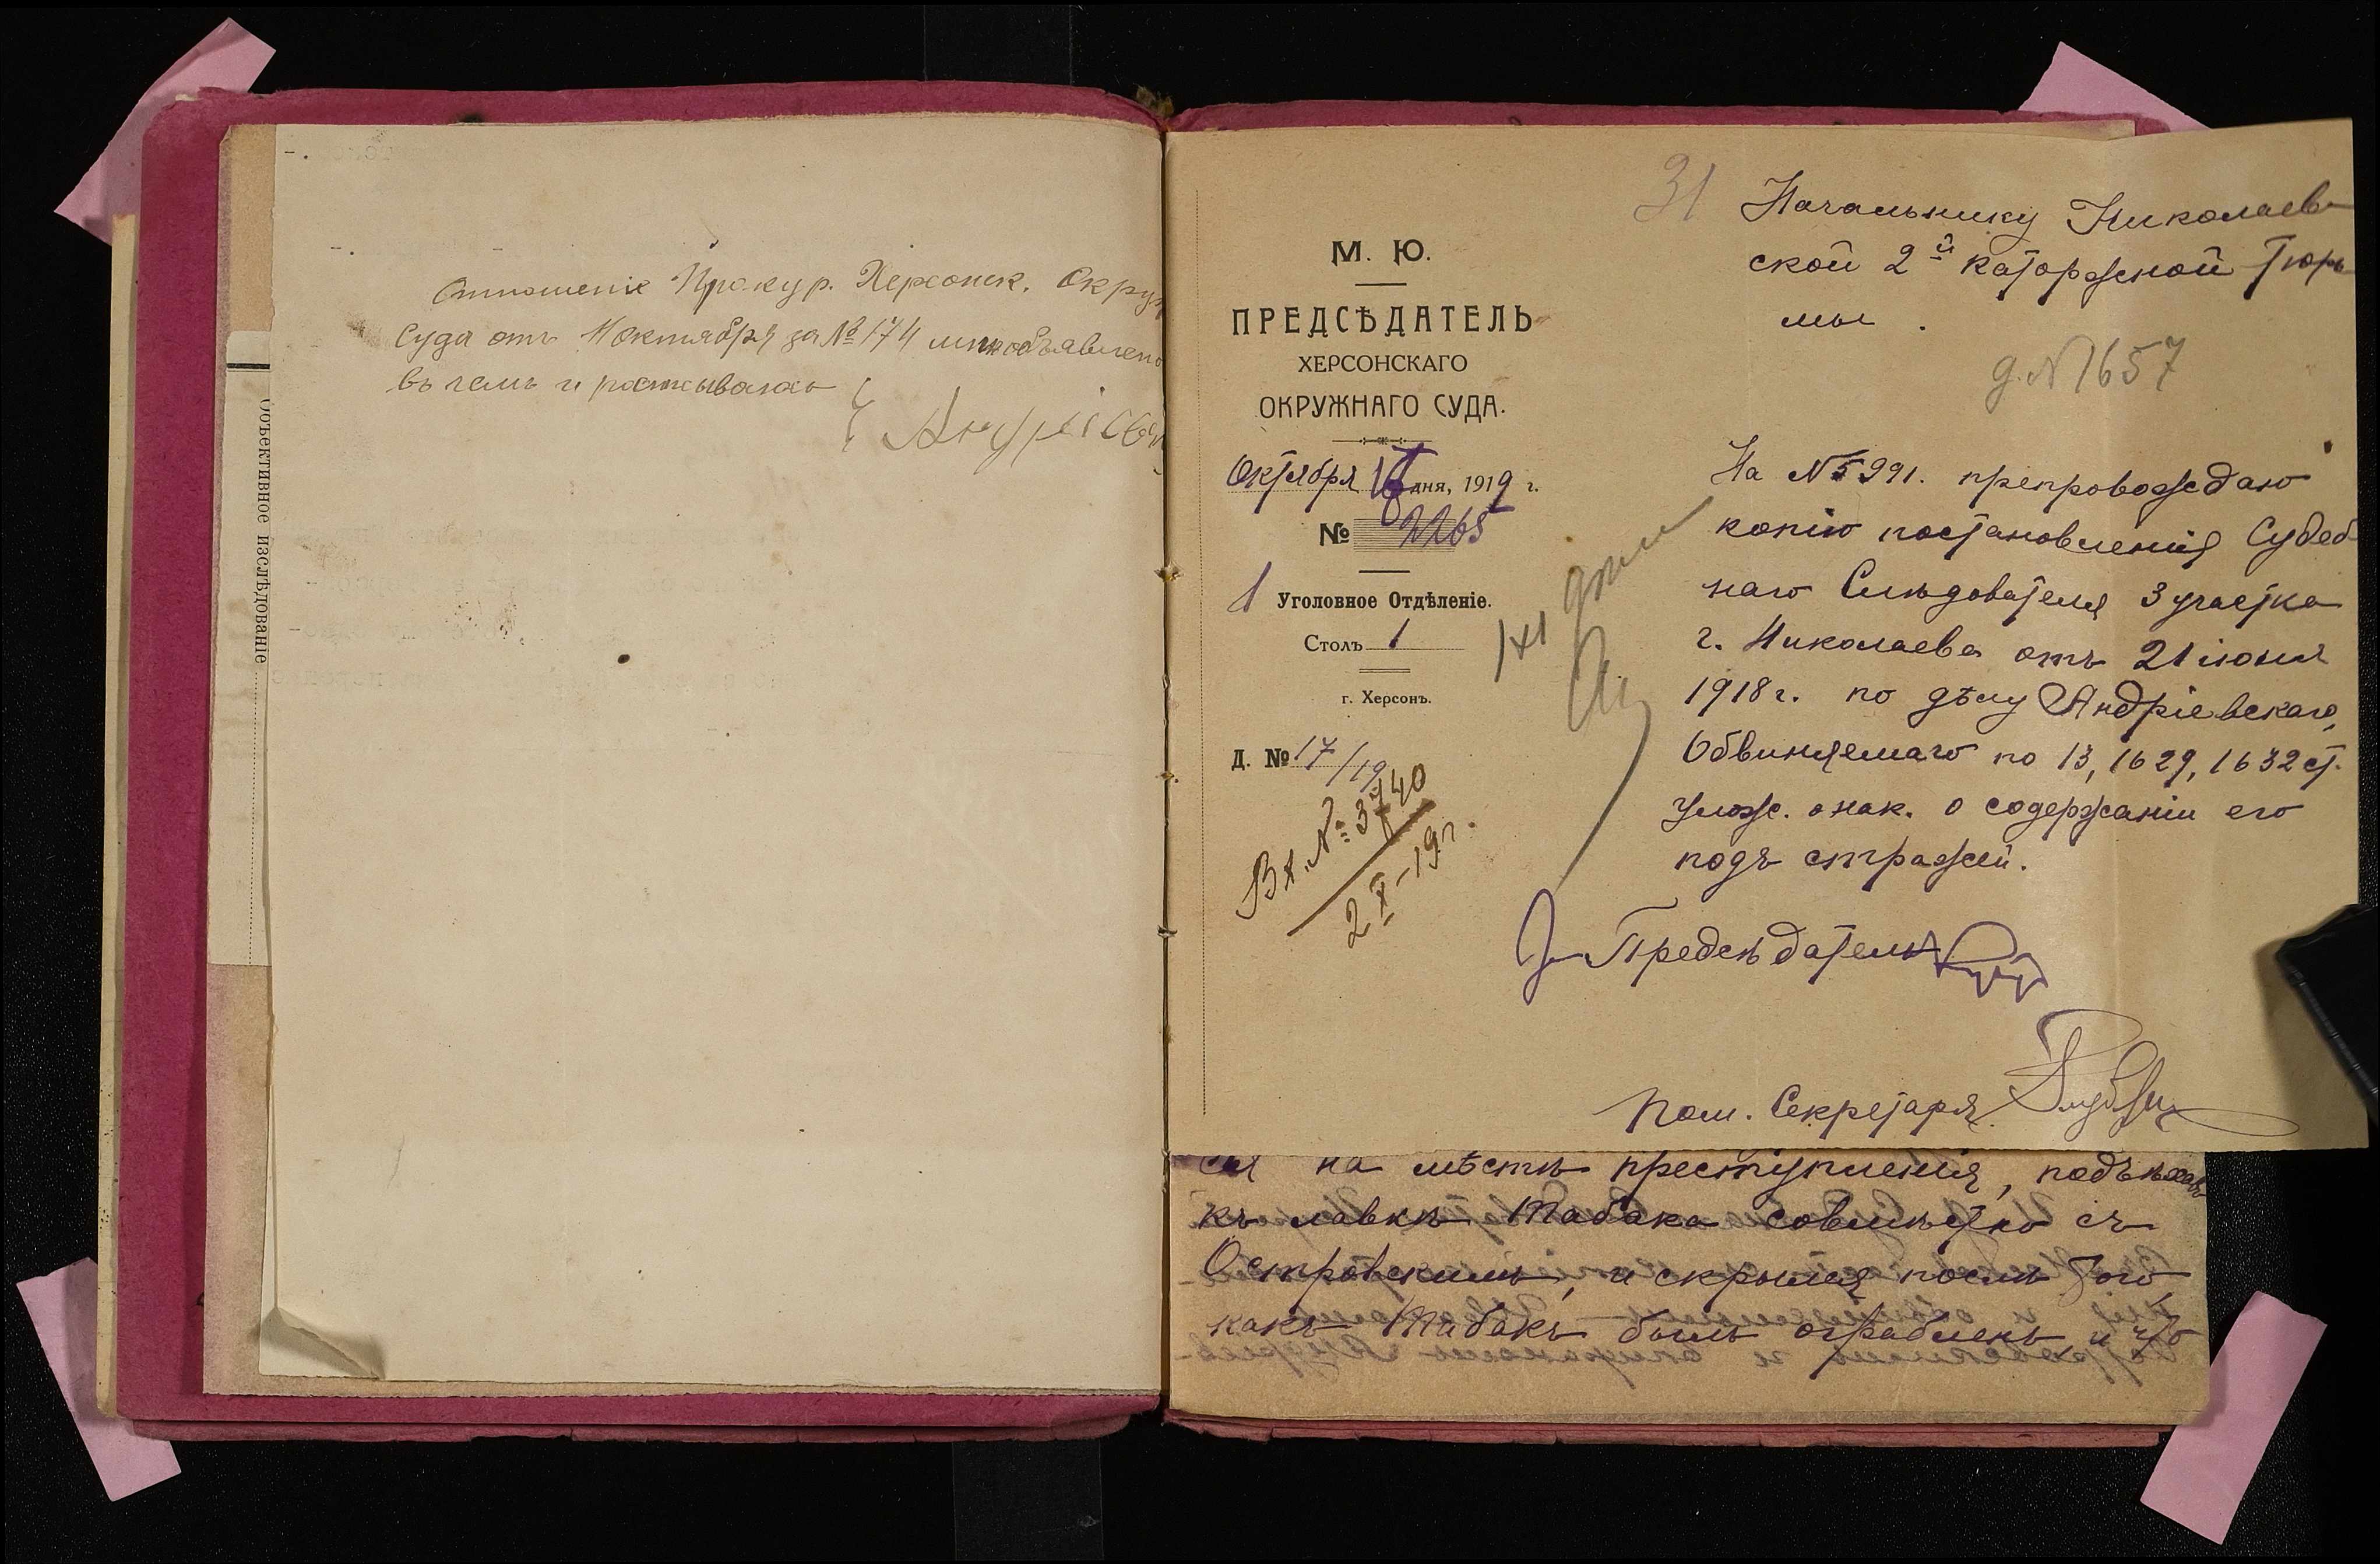 Отношеніе Прокур. Херсонск. Окруж
Суда отъ 11 октября за № 174 мнѣ объявлено
въ чемъ и росписываюсь
Андріевск
Объективное изслѣдованіе
31
М. Ю.
ПРЕДСѢДАТЕЛЬ
ХЕРСОНСКАГО
ОКРУЖНАГО СУДА.
Октября дня, 1919 г.
№ 2265
1 Уголовное Отдѣленіе.
Столъ 1
г. Херсонъ.
Д. № 17/19
Вх. № 3740
2 X-19г.
Начальнику Николаев-
ской 2й каторжной Тюрь
мы.
д. № 1657
На № 5991. препровождаю
копію постановленія Судеб
наго Слѣдователя 3 участка
г. Николаева отъ 21 іюня
1918 г. по дѣлу Андріевскаго,
Обвиняемаго по 13, 1629, 1632 ст.
улож. о нак. о содержаніи его
подъ стражей.
За Предсѣдателя
Пом. Секретаря
ся на мѣстѣ преступленія, подъѣхавъ
къ лавкѣ Табака совмѣстно съ
Островскимъ, и скрылся послѣ того,
какъ Табакъ былъ ограбленъ и что